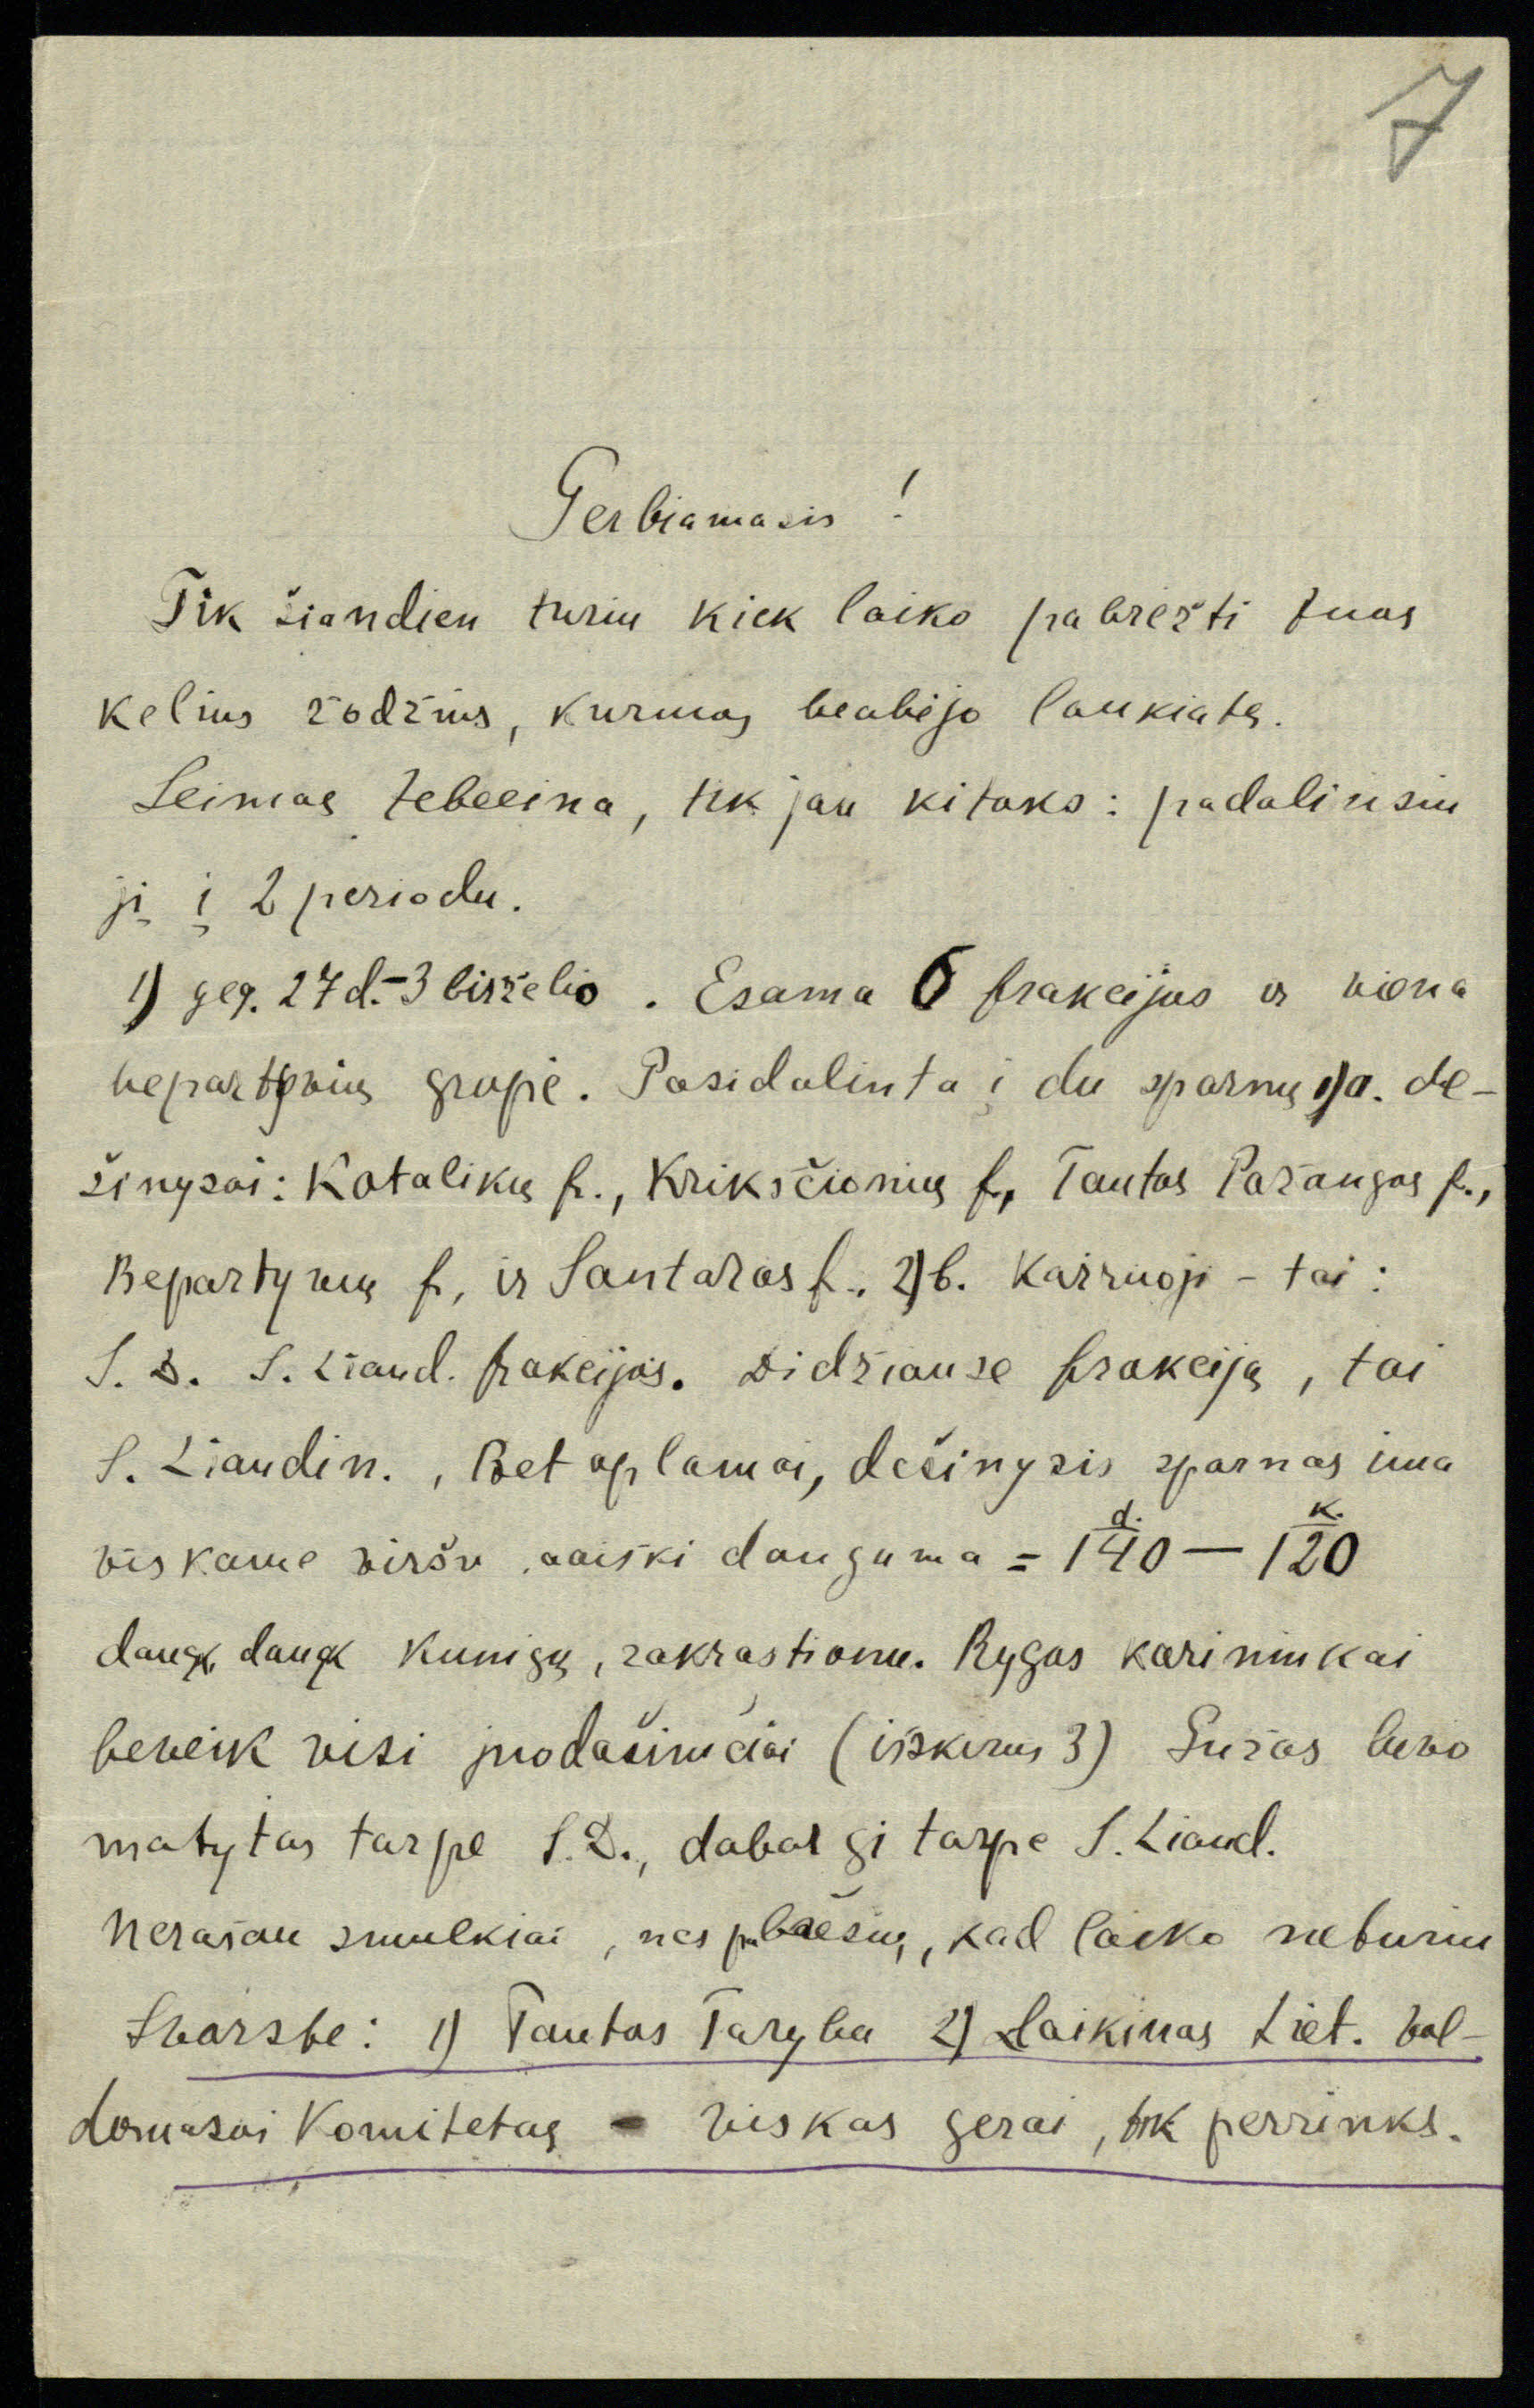 7
Gerbiamasis!
Tik šiandien turiu kiek laiko pabriežti Tuos
kelius žodžius, kuriuos beabėjo laukiate.
Seimas tebeeina, tik jau kitoks: padalinsiu
jį į 2 periodu.
1) geg. 27 d. - 3 birželio. Esama 6 frakcijos ir viena
bepartyvių grupė. Pasidalinta į du sparnų 1) a. de-
šinysai: Katalikų fr., Krikščionių f., Tautos Pažangos f.,
Bepartyvių f, ir Santaros f. 2) b. Kairiuoji - tai:
S. D. S. Liaud. frakcijos. Didžiause frakcija, tai
S. Liaudin., Bet aplamai, dešinysis sparnas ima
viskame viršų aaiški dauguma = 140 d. — 120 k.
daug, daug kunigų, zakrastionu. Rygos karininkai
beveik visi juodašimčiai (išskirus 3) buvo
matytas tarpe S. D., dabar gi tarpe S. Liaud.
Nerašau smulkiai, nes kad laiko neturiu
Svarstė: 1) Tautos Taryba 2) Laikinas Liet. Val-
domasai Komitetas - viskas gerai, tik perrinks.